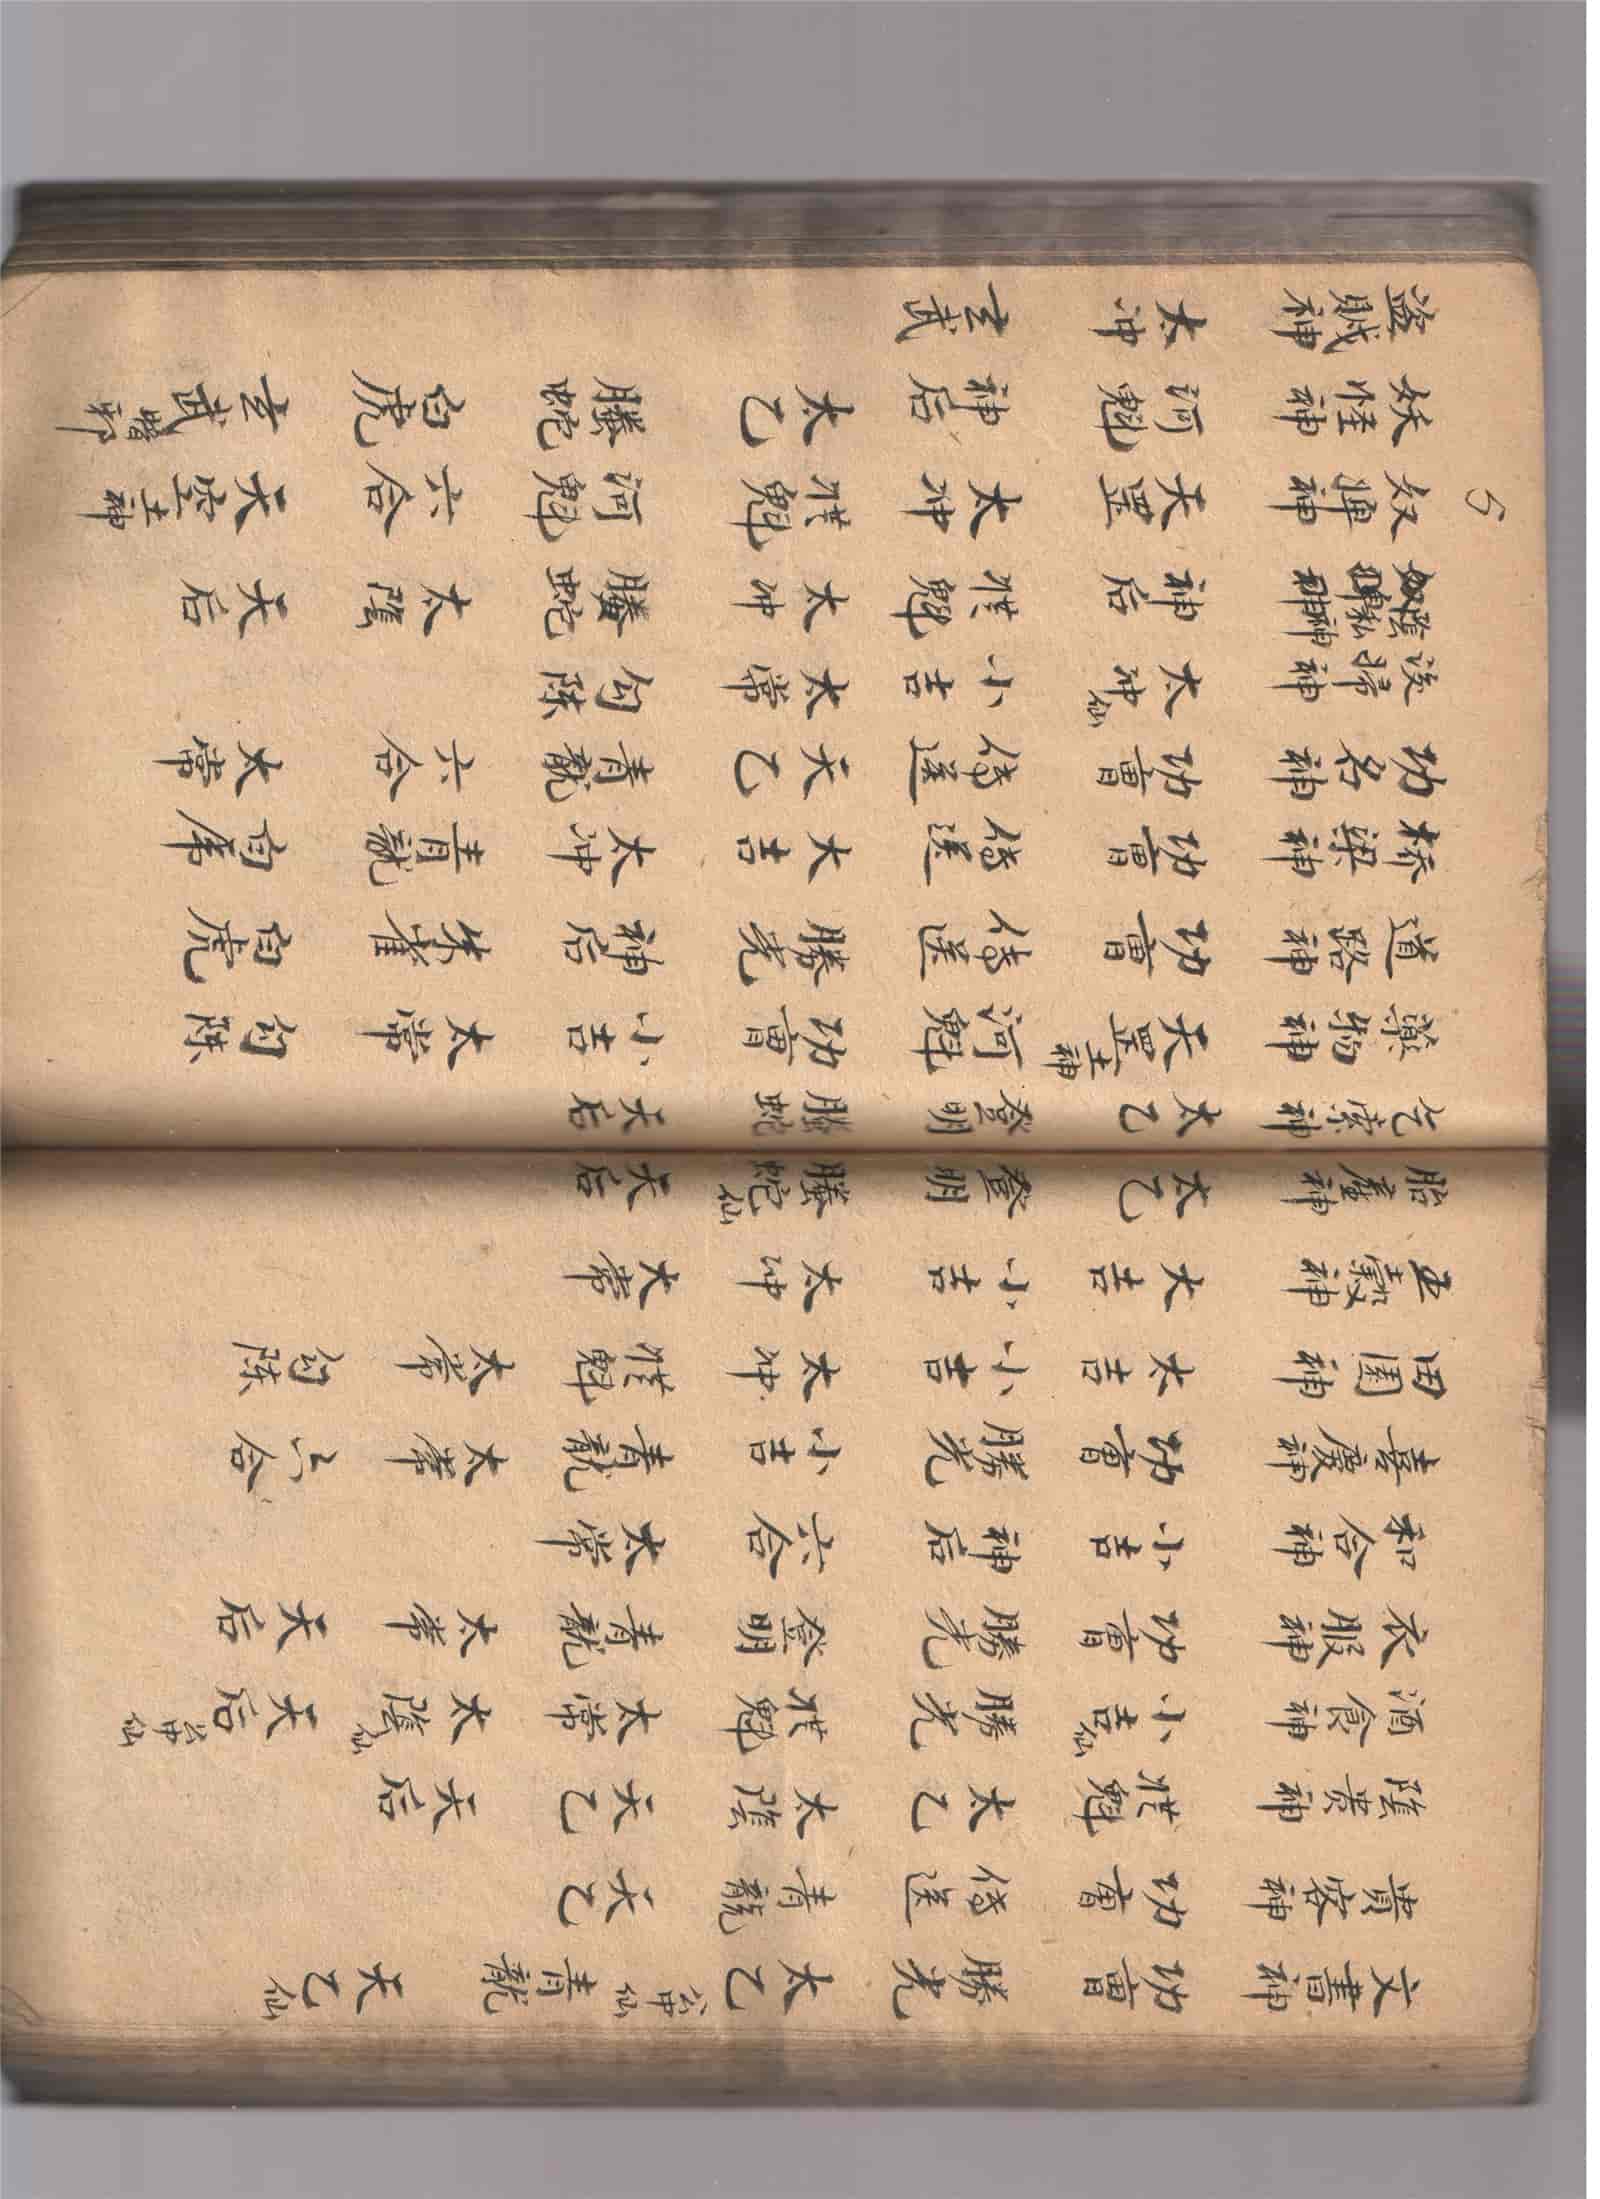 文書神 功曹 勝光 太乙 仙 青龍 天乙仙
貴客神 功曹 傳送 青龍 天乙
陰貴神 從魁 太乙 太陰 天乙 天后
酒食神 小吉仙 勝光 從魁 太常 太陰仙 天后 仙
衣服神 功曹 勝光 登明 青龍 太常 天后
和合神 小吉 神后 六合 太常
喜慶神 功曹 勝光 小吉 青龍 太常 六合
田園神 太吉 小吉 太冲 從魁 太常 勾陳
五穀神 大吉 小吉 太冲 太常
胎產神 太乙 登明 螣蛇仙 天后
乞索神 太乙 登明 螣蛇 天后
藥物神 天罡土神 河魁 功曹 小吉 太常 勾陳
道路神 功曹 傳送 勝光 神后 朱雀 白虎
桥梁神 功曹 傳送 大吉 太冲 青龍 白虎
功名神 功曹 傳送 天乙 青龍 六合 太常
浚掃神 太冲仙 小吉 太常 勾陳
陰私神 神后 從魁 太冲 螣蛇 太陰 天后
奴婢神 天罡 太冲 從魁 河魁 六合 天空土神
妖怪神 河魁 神后 太乙 螣蛇 白虎 玄武
盜賊神 太冲 玄武
5